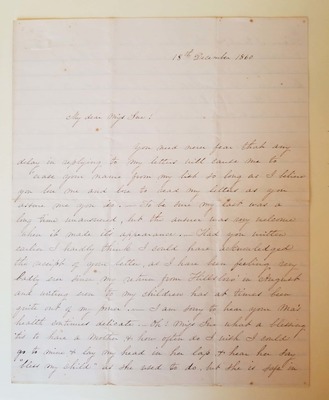 18th December 1860
My dear Miss Sue:
You need never fear that any
delay in replying to my letters will cause me to
erase your name from my list so long as I believe
you love me and love to read my letters as you
assure me you do. To be sure my last was a
long time unanswered, but the answer was very welcome
when it made its appearance. Had you written
earlier I hardly think I could have acknowledged
the receipt of your letter, as I have been feeling very
badly ever since my return from in August
and writing even to my children has at times been
quite out of my power. I am sorry to hear your Ma's
health continues delicate. Oh! Miss Sue what a blessing
tis to have a Mother & how often do I wish I could
go to mine & lay my head in her lap & hear her say
"bless my child" as she used to do, but she is safe in